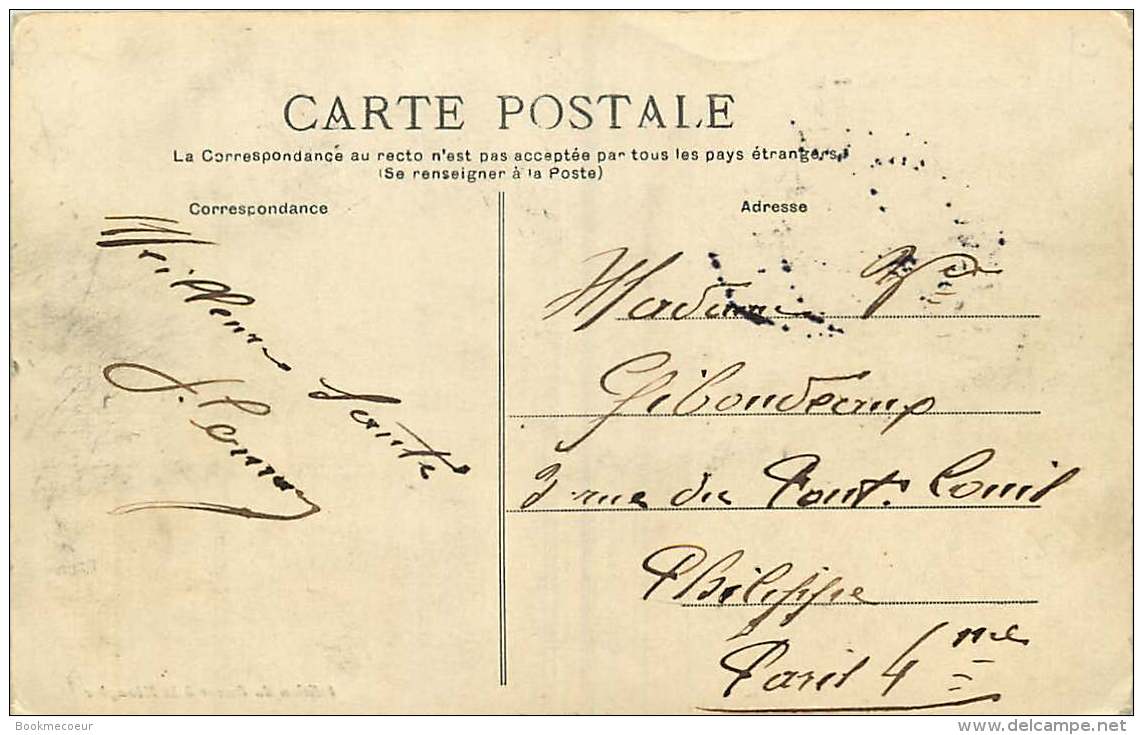 CARTE POSTALE
La Correspondance au recto n'est pas acceptée par tous les pays étrangers
(Se renseigner à la Poste)
Correspondance
Meilleure Santé
Adresse
Madame Vve
Giboudeaux
3 rue du Pont. Louis
Philippe
Paris 4me
Bookmecoeur
www.delcampe.net